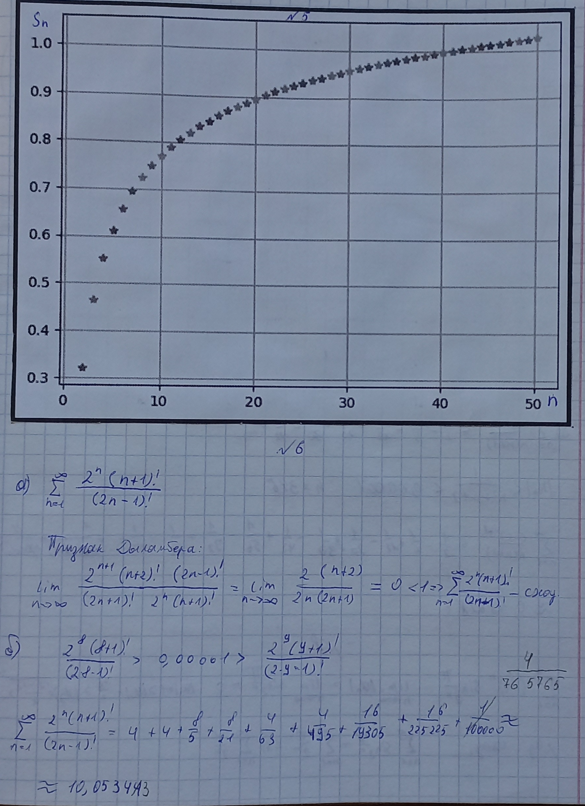 Sn
№5
1.0
0.9
0.8
0.7
0.6
0.5
0.4
0.3
0 10 20 30 40 50 n
№6
а) ∑_{n=1}^{∞} 2^n (n+1)! / (2n-1)!
Признак Даламбера:
lim_{n→∞} 2^{n+1} (n+2)! (2n-1)! / (2n+1)! 2^n (n+1)! = lim_{n→∞} 2 (n+2) / 2n (2n+1) = 0 < 1 => ∑_{n=1}^{∞} 2^n (n+1)! / (2n-1)! - сход
б) 2^8 (8+1)! / (2·8-1)! > 0,00001 > 2^9 (9+1)! / (2·9-1)!
4 / 765765
∑_{n=1}^{∞} 2^n (n+1)! / (2n-1)! = 4 + 4 + 8/5 + 8/21 + 4/63 + 4/495 + 16/19305 + 16/225225 + 1/100000 ≈
≈ 10,053443